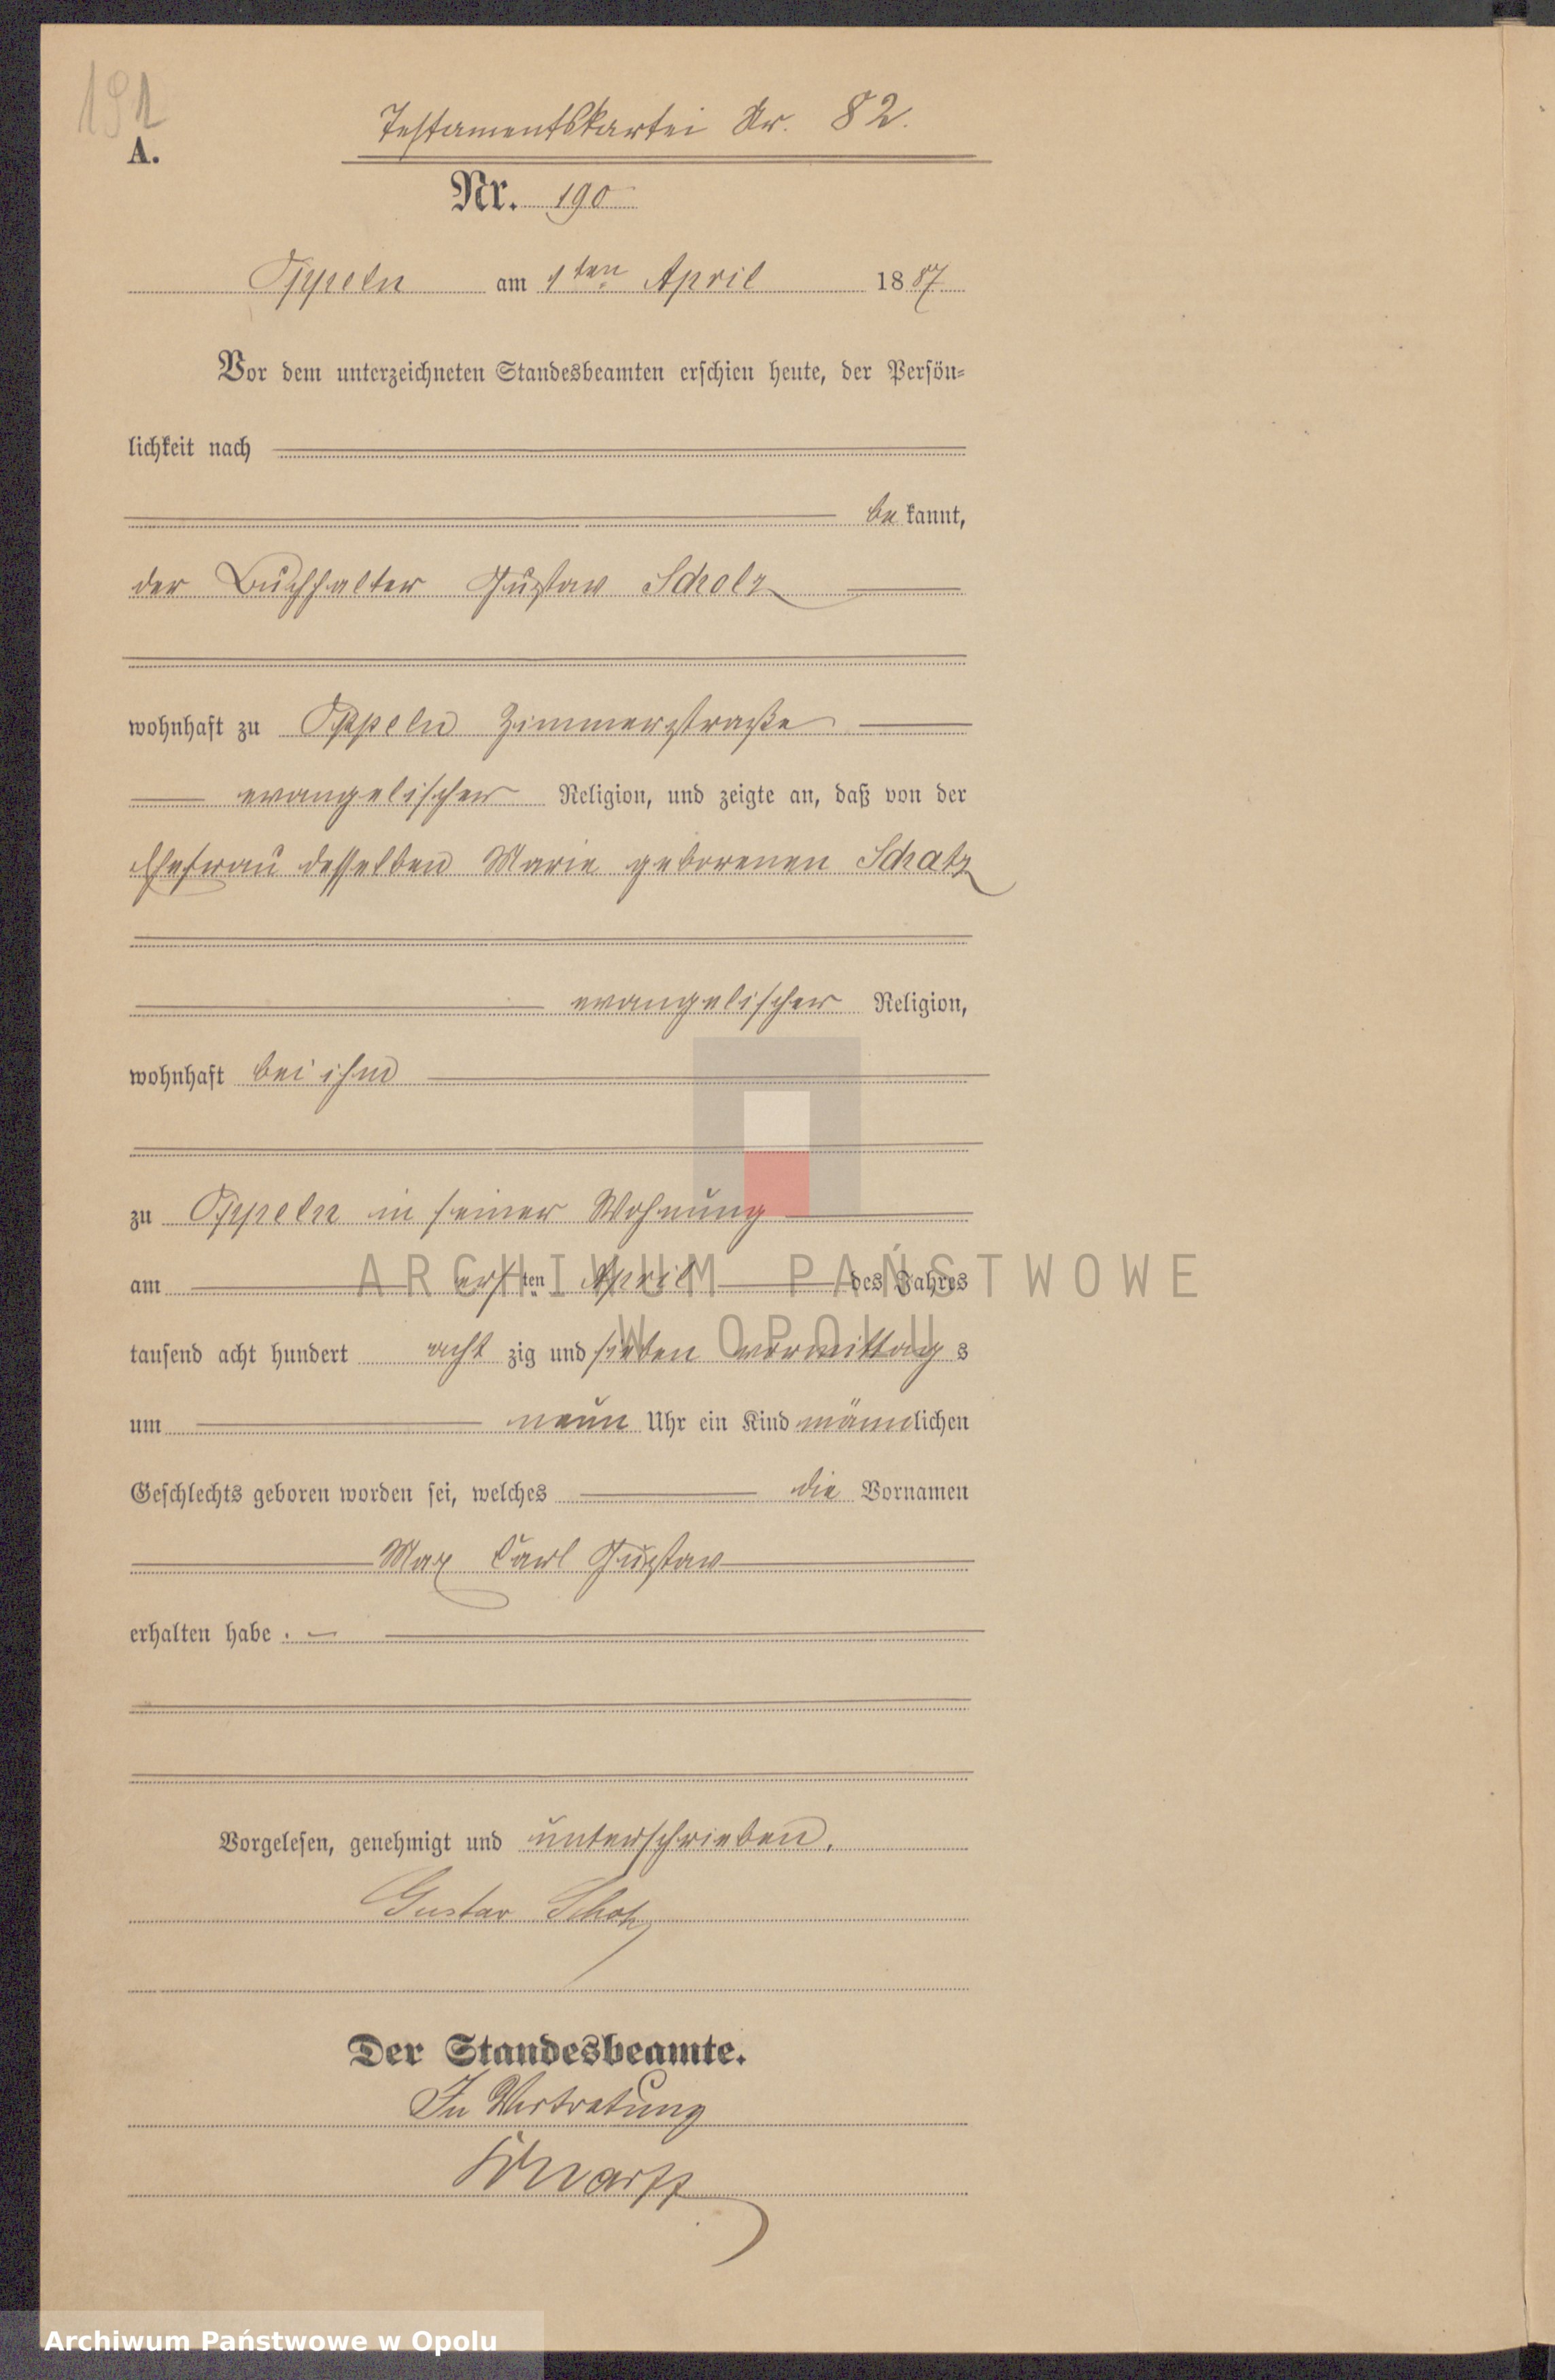 191
A.
Testamentskartei Nr. 82.
Nr. 190
Oppeln am 1ten April 1887
Vor dem unterzeichneten Standesbeamten erschien heute, der Persön-
lichkeit nach
bekannt,
der Buchhalter Gustav Scholz
wohnhaft zu Oppeln Zimmerstraße
evangelischer Religion, und zeigte an, daß von der
Ehefrau desselben Marie geborenen Schatz
evangelischer Religion,
wohnhaft bei ihm
zu Oppeln in seiner Wohnung
am ersten April des Jahres
ARCHIWUM PAŃSTWOWE
W OPOLU
tausend acht hundert achtzig und sieben vormittags
um neun Uhr ein Kind männlichen
Geschlechts geboren worden sei, welches die Vornamen
Max Carl Gustav
erhalten habe.
Vorgelesen, genehmigt und unterschrieben.
Gustav Scholz
Der Standesbeamte.
In Vertretung
Archiwum Państwowe w Opolu